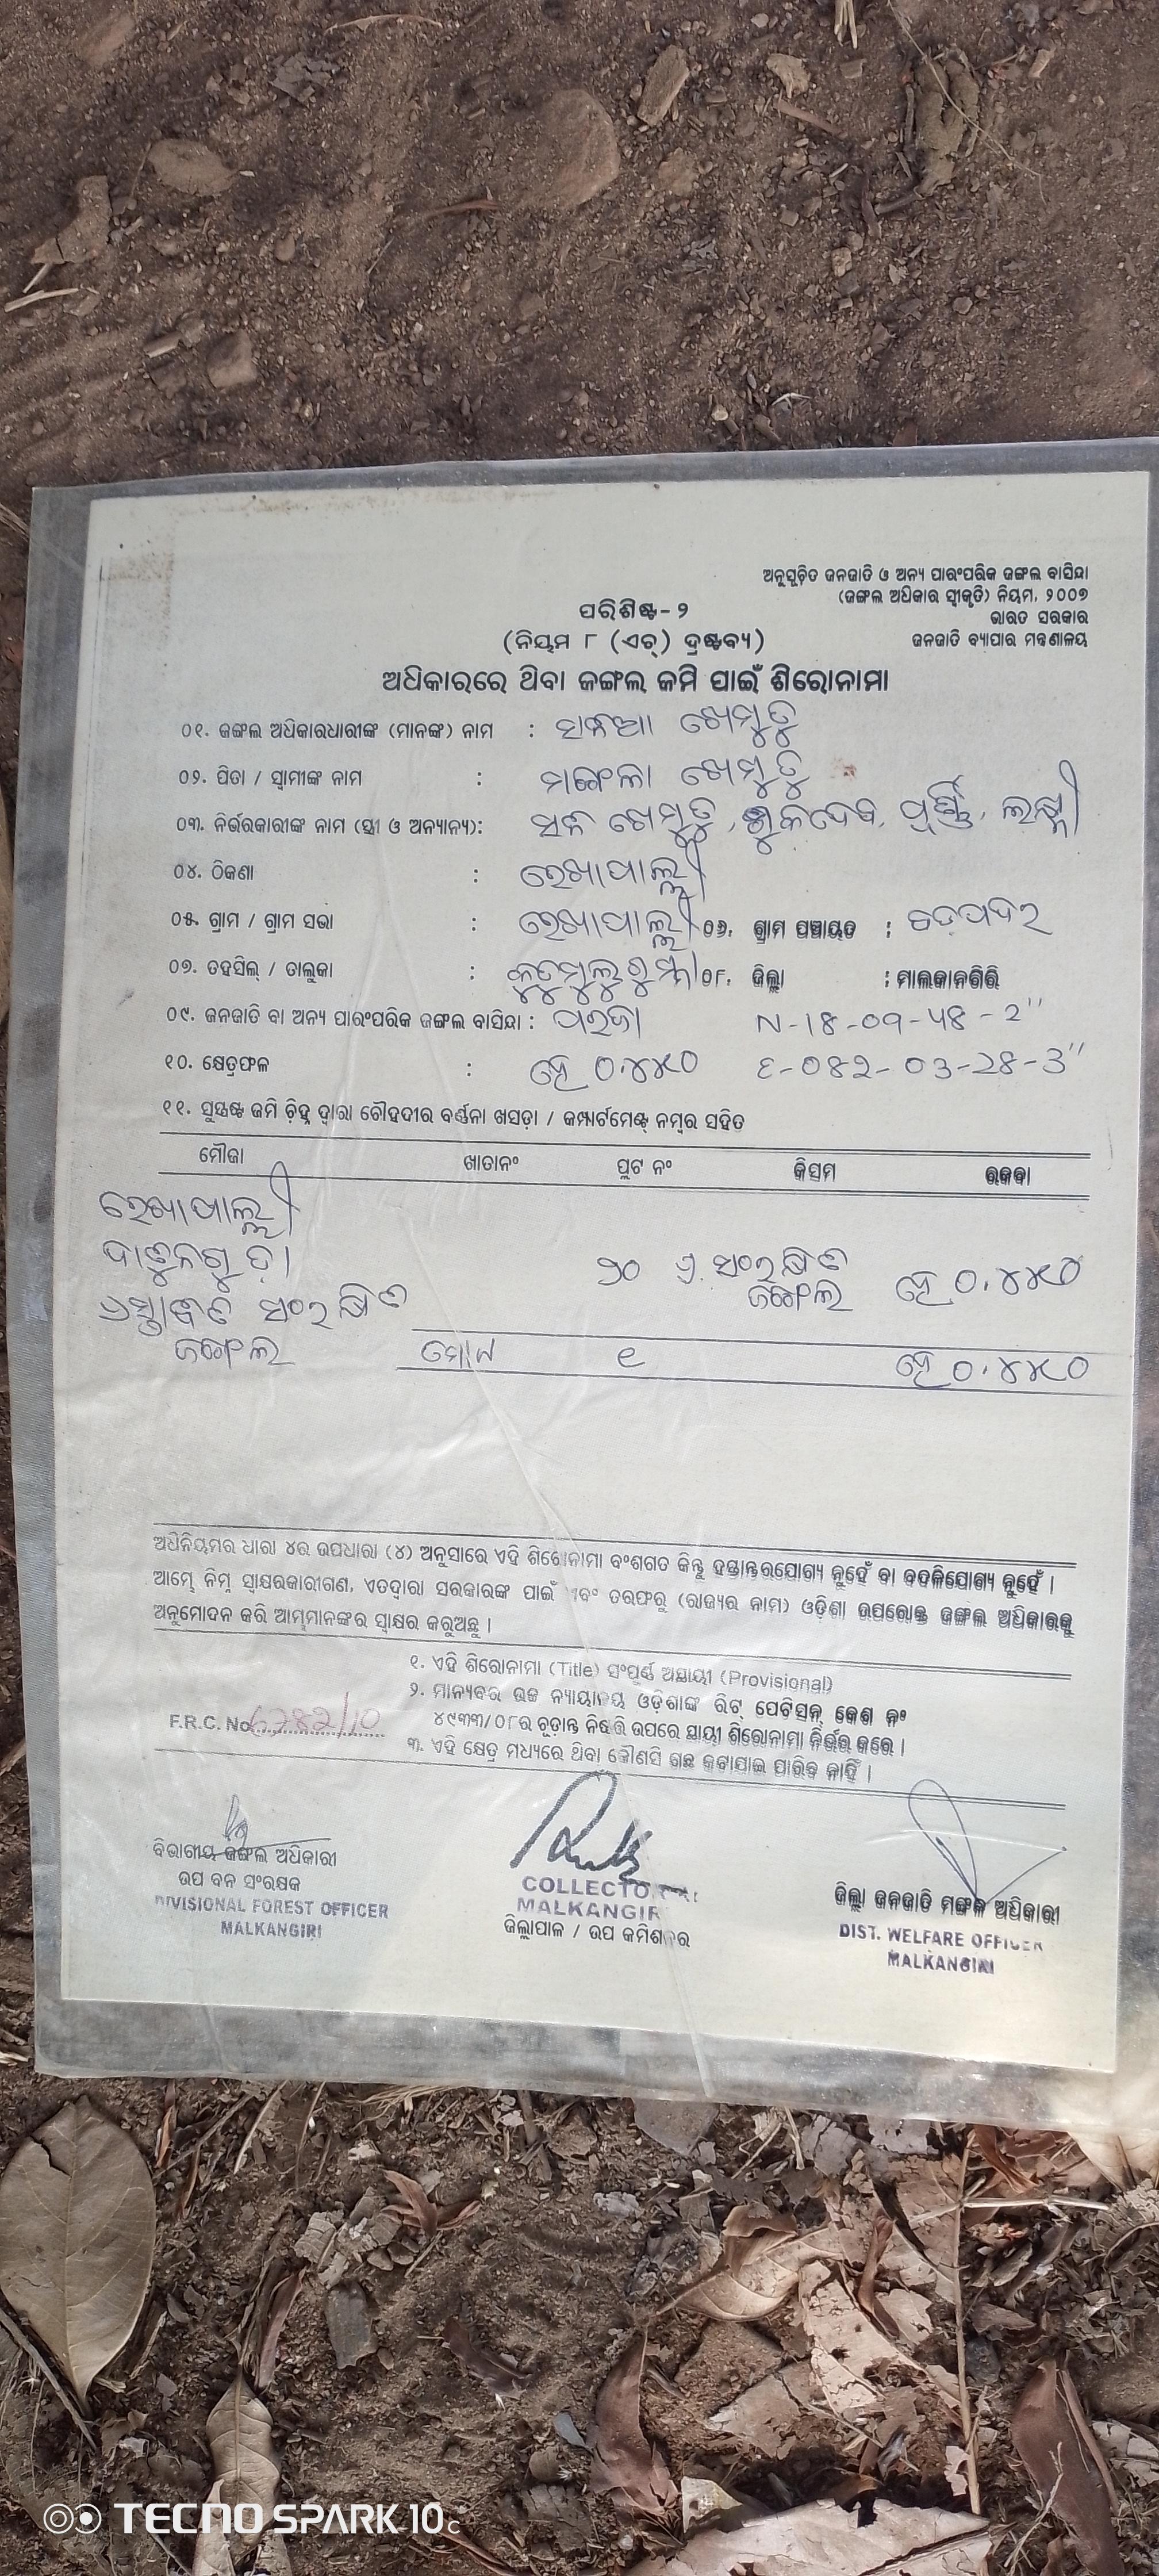 ଅନୁସୂଚିତ ଜନଜାତି ଓ ଅନ୍ୟ ପାରଂପରିକ ଜଙ୍ଗଲ ବାସିନ୍ଦା
(ଜଙ୍ଗଲ ଅଧିକାର ସ୍ୱୀକୃତି) ନିୟମ, ୨୦୦୭
ଭାରତ ସରକାର
ଜନଜାତି ବ୍ୟାପାର ମନ୍ତ୍ରଣାଳୟ
ପରିଶିଷ୍ଟ-୨
(ନିୟମ ୮ (ଏଚ୍) ଦ୍ରଷ୍ଟବ୍ୟ)
ଅଧିକାରରେ ଥିବା ଜଙ୍ଗଲ ଜମି ପାଇଁ ଶିରୋନାମା
୦୧. ଜଙ୍ଗଲ ଅଧିକାରଧାରୀଙ୍କ (ମାନଙ୍କ) ନାମ :
୦୨. ପିତା / ସ୍ୱାମୀଙ୍କ ନାମ : ମଙ୍ଗଳା
୦୩. ନିର୍ଭରକାରୀଙ୍କ ନାମ (ସ୍ତ୍ରୀ ଓ ଅନ୍ୟାନ୍ୟ):
୦୪. ଠିକଣା : ରେଖାପାଲ୍ଲୀ
୦୫. ଗ୍ରାମ / ଗ୍ରାମ ସଭା : ରେଖାପାଲ୍ଲୀ ୦୬. ଗ୍ରାମ ପଞ୍ଚାୟତ : ବଡପଦର
୦୭. ତହସିଲ୍ / ତାଲୁକା : କୁଡୁମୁଲୁଗୁମ୍ମା ୦୮. ଜିଲ୍ଲା : ମାଲକାନଗିରି
୦୯. ଜନଜାତି ବା ଅନ୍ୟ ପାରଂପରିକ ଜଙ୍ଗଲ ବାସିନ୍ଦା : ପରଜା N-18-09-48-2"
୧୦. କ୍ଷେତ୍ରଫଳ : ହେ ୦.୪୪୦ E-082-03-28-3"
୧୧. ସୁସ୍ପଷ୍ଟ ଜମି ଚିହ୍ନ ଦ୍ୱାରା ଚୌହଦୀର ବର୍ଣ୍ଣନା ଖସଡ଼ା / କମ୍ପାର୍ଟମେଣ୍ଟ୍ ନମ୍ବର ସହିତ
ମୌଜା ଖାତାନଂ ପ୍ଲଟ ନଂ କିସମ ରକବା
ରେଖାପାଲ୍ଲୀ
ସଂରକ୍ଷିତ ହେ ୦.୪୪୦
ପ୍ରସ୍ତାବିତ ସଂରକ୍ଷିତ ଜଙ୍ଗଲ
ଜଙ୍ଗଲ ମୋଟ ୧ ହେ ୦.୪୪୦
ଅଧିନିୟମର ଧାରା ୪ର ଉପଧାରା (୪) ଅନୁସାରେ ଏହି ଶିରୋନାମା ବଂଶଗତ କିନ୍ତୁ ହସ୍ତାନ୍ତରଯୋଗ୍ୟ ନୁହେଁ ବା ବଦଳିଯୋଗ୍ୟ ନୁହେଁ ।
ଆମ୍ଭେ ନିମ୍ନ ସ୍ୱାକ୍ଷରକାରୀଗଣ, ଏତଦ୍ୱାରା ସରକାରଙ୍କ ପାଇଁ ଏବଂ ତରଫରୁ (ରାଜ୍ୟର ନାମ) ଓଡ଼ିଶା ଉପରୋକ୍ତ ଜଙ୍ଗଲ ଅଧିକାରକୁ
ଅନୁମୋଦନ କରି ଆମ୍ଭମାନଙ୍କର ସ୍ୱାକ୍ଷର କରୁଅଛୁ ।
୧. ଏହି ଶିରୋନାମା (Title) ସଂପୂର୍ଣ୍ଣ ଅସ୍ଥାୟୀ (Provisional)
୨. ମାନ୍ୟବର ଉଚ୍ଚ ନ୍ୟାୟାଳୟ ଓଡ଼ିଶାଙ୍କ ରିଟ୍ ପେଟିସନ୍ କେଶ ନଂ
୪୯୩୩/୦୮ର ଚୂଡ଼ାନ୍ତ ନିଷ୍ପତ୍ତି ଉପରେ ସ୍ଥାୟୀ ଶିରୋନାମା ନିର୍ଭର କରେ ।
F.R.C. No 6782/10
୩. ଏହି କ୍ଷେତ୍ର ମଧ୍ୟରେ ଥିବା କୌଣସି ଗଛ କଟାଯାଇ ପାରିବ ନାହିଁ ।
ବିଭାଗୀୟ ଜଙ୍ଗଲ ଅଧିକାରୀ
ଉପ ବନ ସଂରକ୍ଷକ
DIVISIONAL FOREST OFFICER
MALKANGIRI
COLLECTOR
MALKANGIRI
ଜିଲ୍ଲାପାଳ / ଉପ କମିଶନର
ଜିଲ୍ଲା ଜନଜାତି ମଙ୍ଗଳ ଅଧିକାରୀ
DIST. WELFARE OFFICER
MALKANGIRI
TECNO SPARK 10C